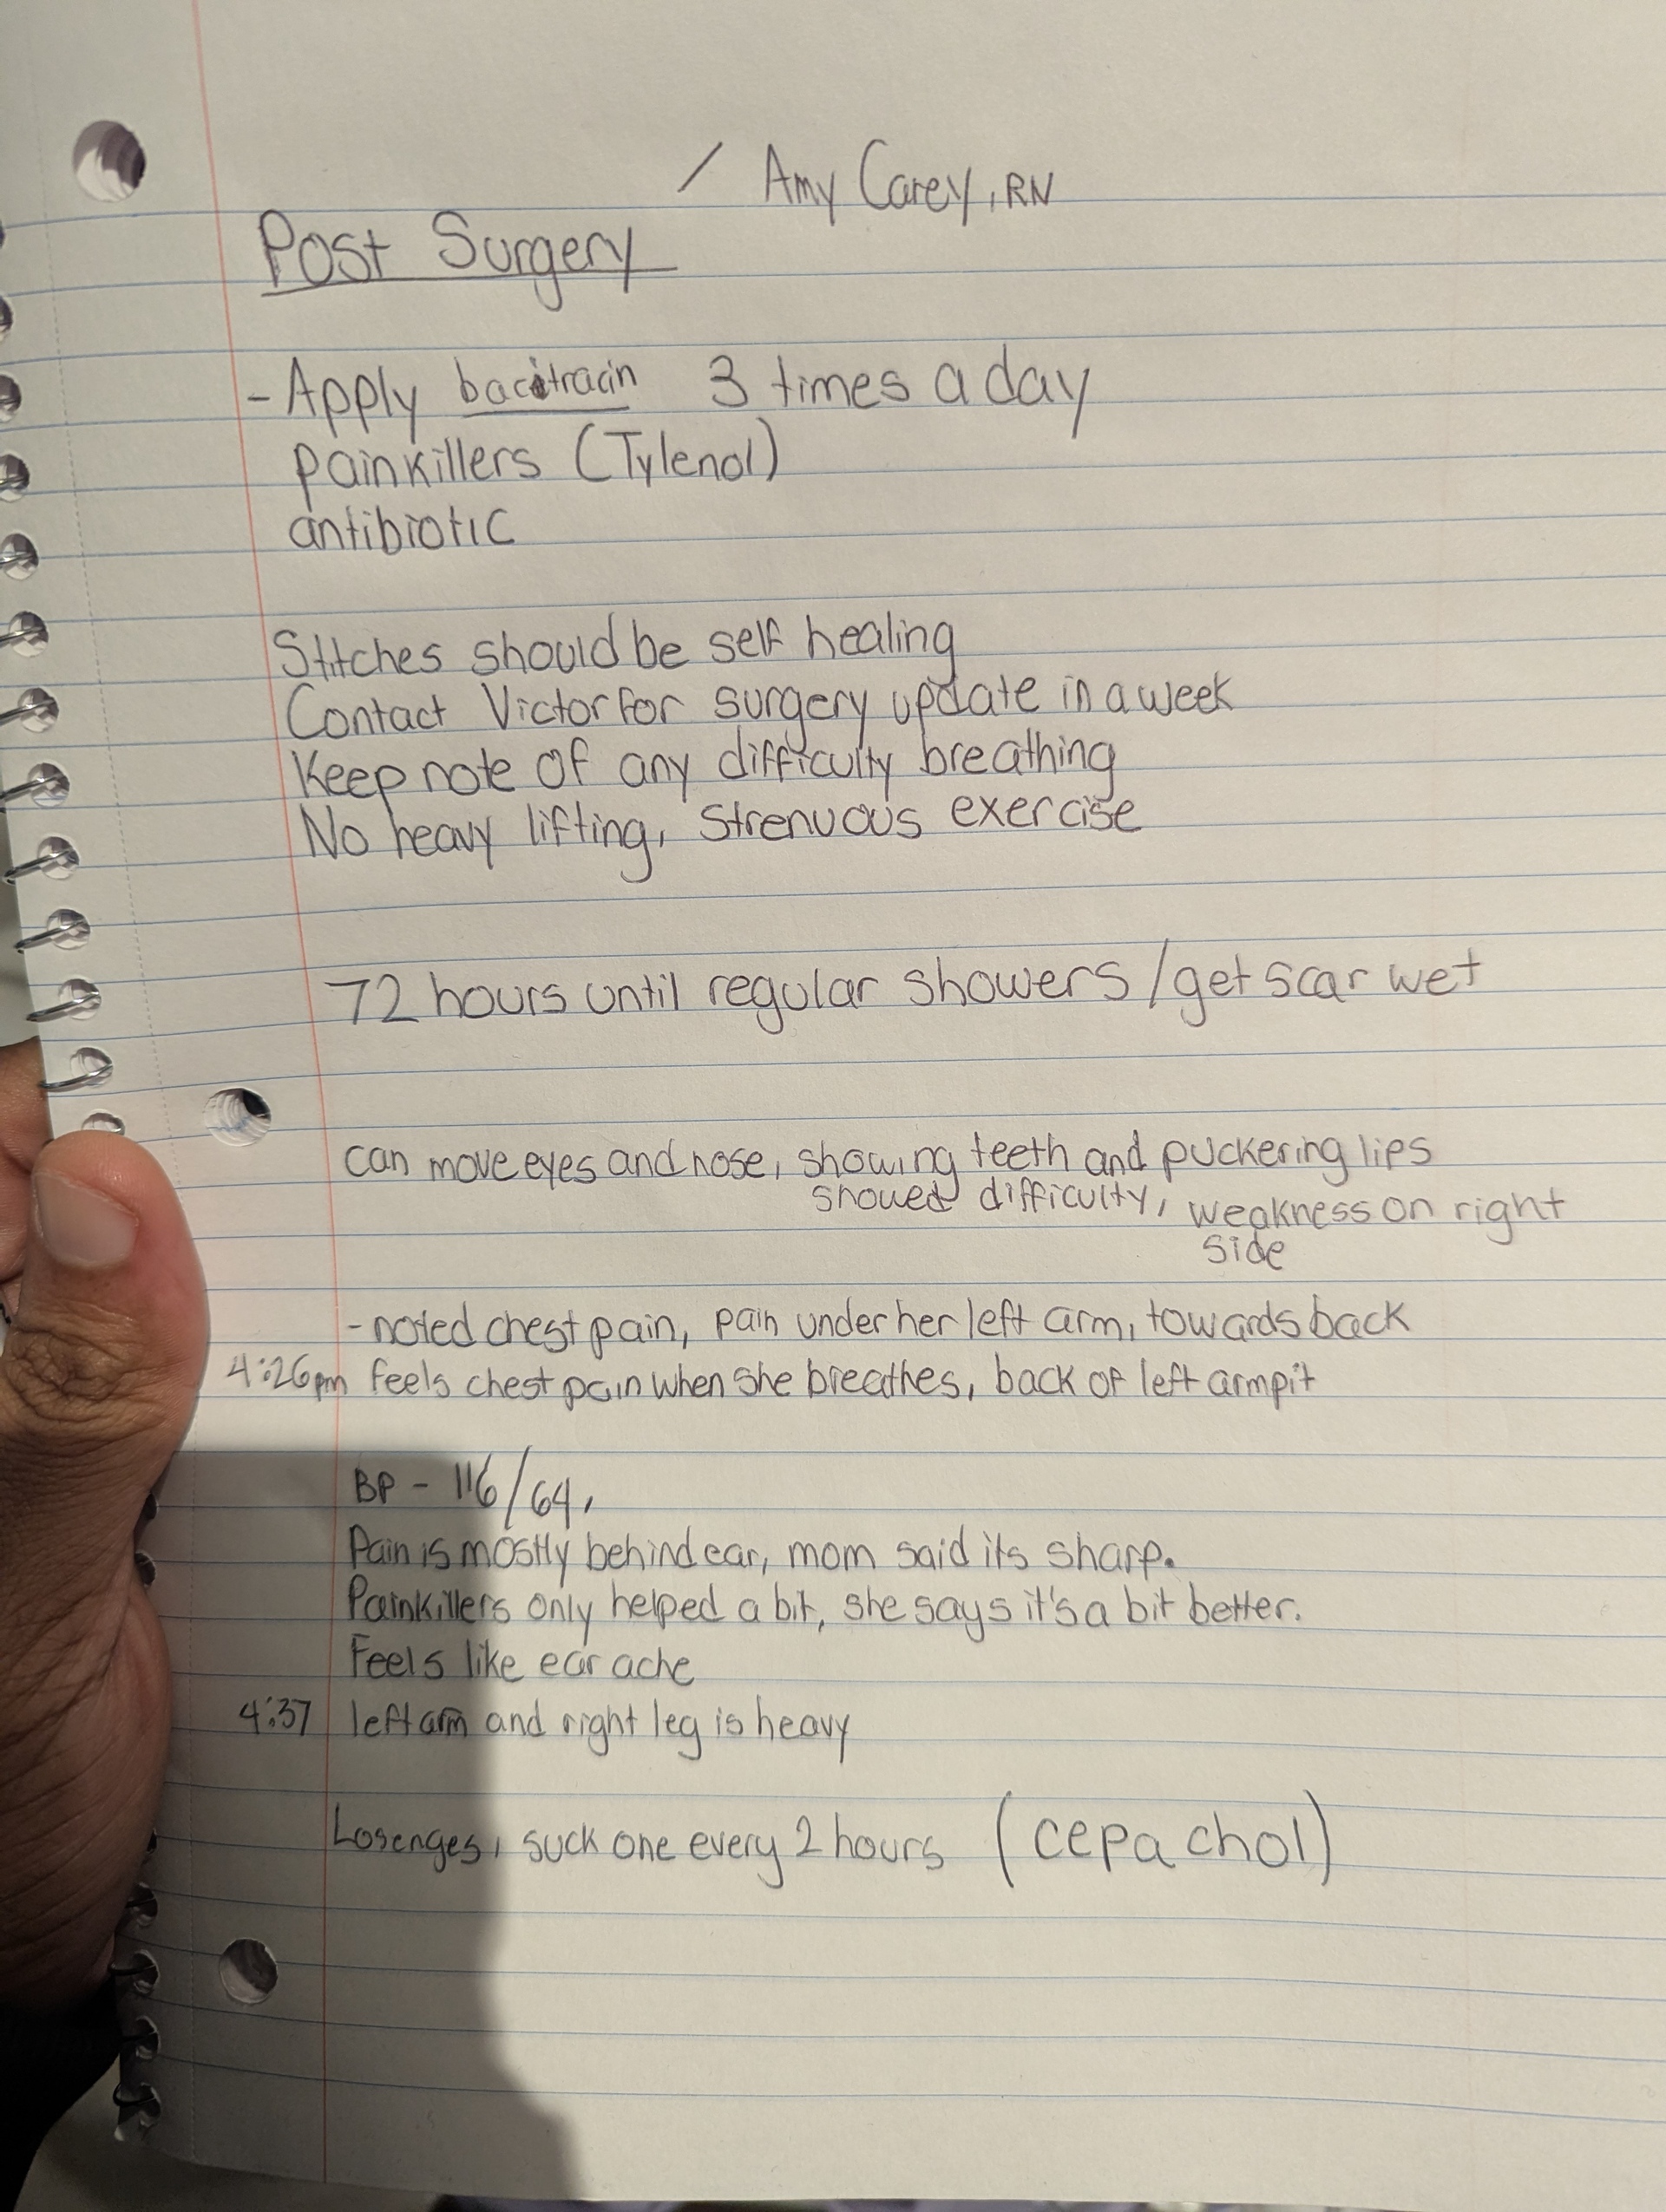 / Amy Carey, RN
Post Surgery
- Apply bacitracin 3 times a day
painkillers (Tylenol)
antibiotic
Stitches should be self healing
Contact Victor for surgery update in a week
Keep note of any difficulty breathing
No heavy lifting, strenuous exercise
72 hours until regular showers / get scar wet
can move eyes and nose, showing teeth and puckering lips
showed difficulty, weakness on right
side
- noted chest pain, pain under her left arm, towards back
4:26pm feels chest pain when she breathes, back of left armpit
BP - 116/64,
Pain is mostly behind ear, mom said its sharp.
Painkillers only helped a bit, she says it's a bit better.
Feels like ear ache
4:37 left arm and right leg is heavy
Losenges, suck one every 2 hours (cepachol)